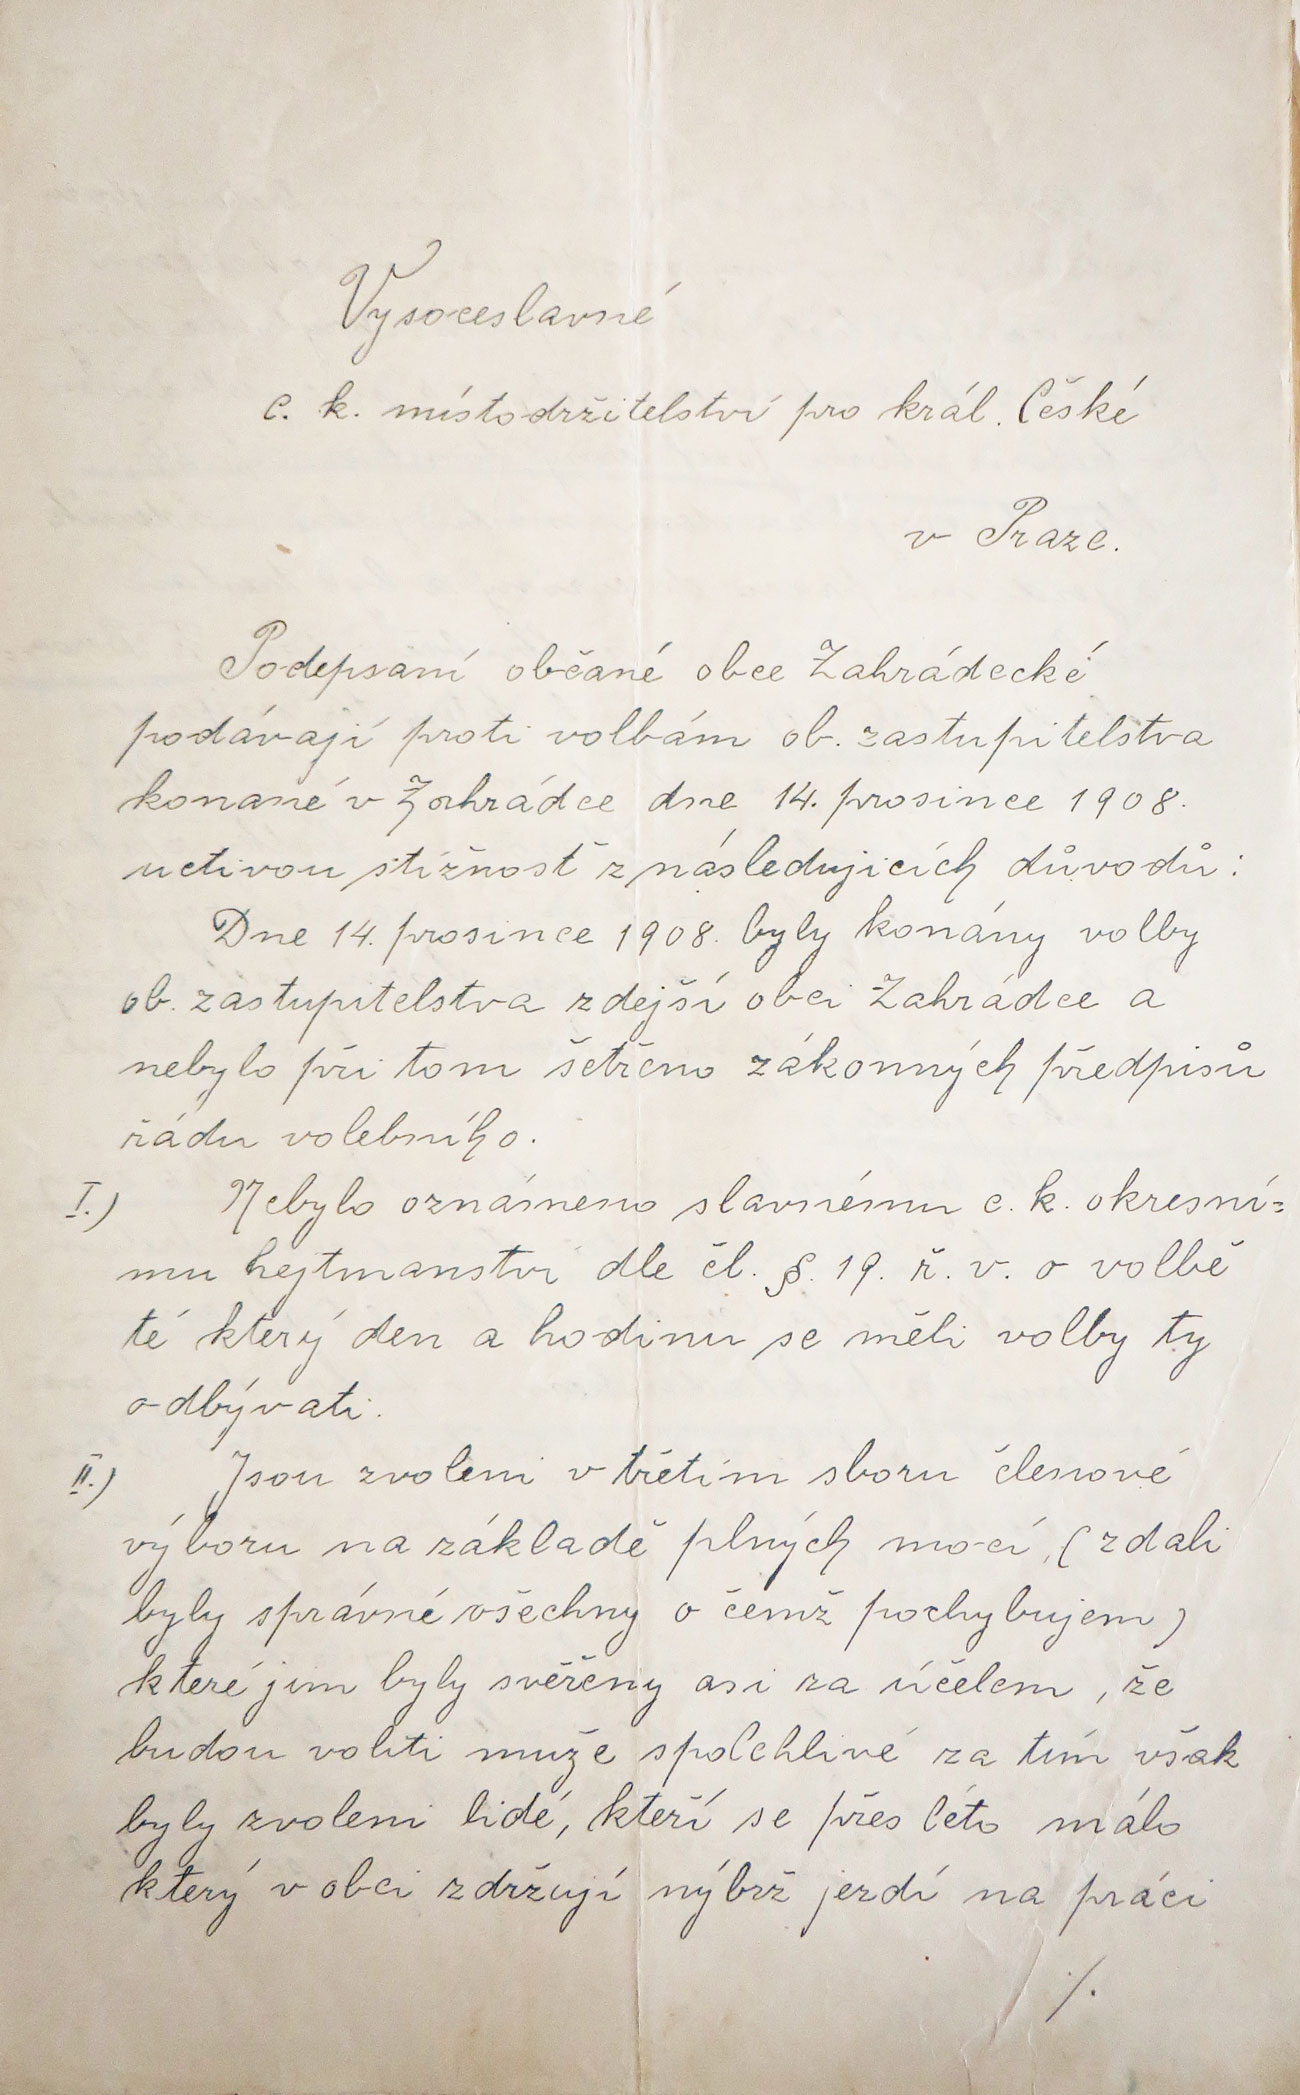 Vysoceslavné
c. k. místodržitelství pro král. České
v Praze.
Podepsaní občané obce Zahrádecké
podávají proti volbám ob. zastupitelstva
konané v Zahrádce dne 14. prosince 1908.
uctivou stížnosť z následujicích důvodů:
Dne 14. prosince 1908. byly konány volby
ob. zastupitelstva zdejší obci Zahrádce a
nebylo při tom šetřeno zákonných předpisů
řádu volebního.
I.) Nebylo oznámeno slavnému c. k. okresní=
mu hejtmanství dle čl. §. 19. ř. v. o volbě
té který den a hodinu se měli volby ty
odbývati.
II.) Jsou zvoleni v třetím sboru členové
výboru na základě plných mocí, (zdali
byly správné všechny o čemž pochybujem)
které jim byly svěřeny asi za účelem, že
budou voliti muže spolehlivé za tím však
byly zvoleni lidé, kteří se přes léto málo
který v obci zdržují nýbrž jezdí na práci
./.